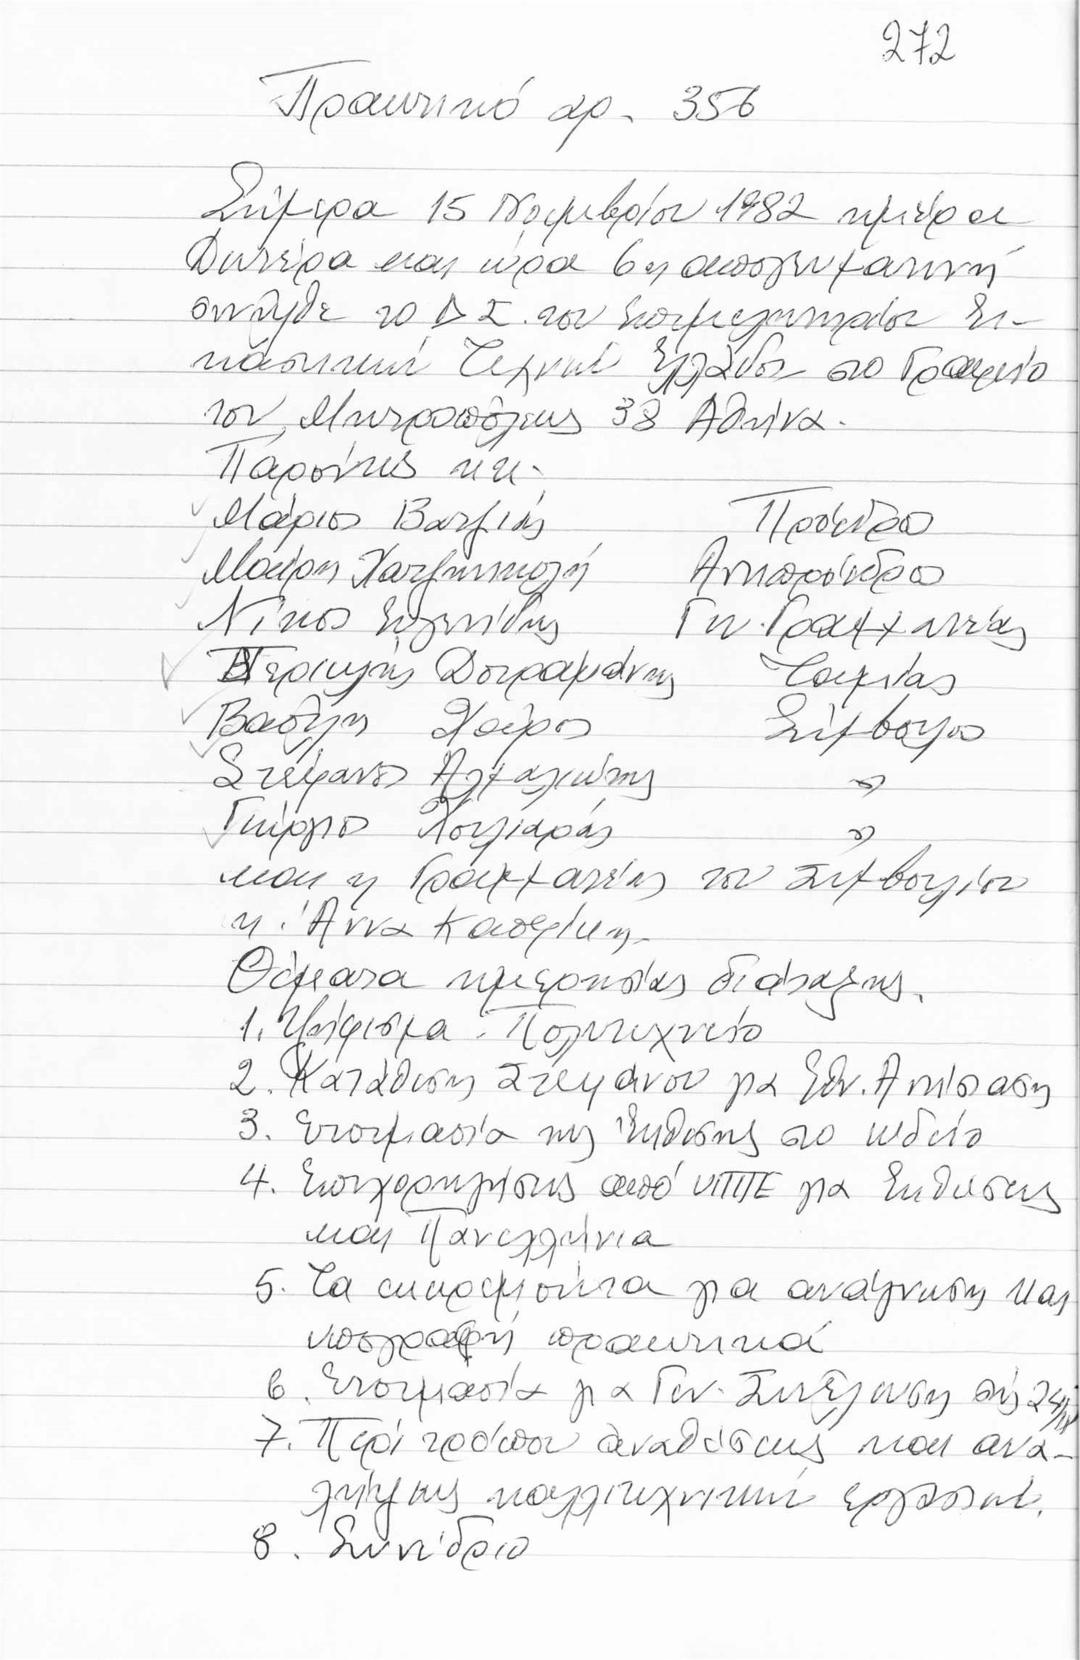 272
Πρακτικό αρ. 356
Σήμερα 15 Νοεμβρίου 1982 ημέρα
Δευτέρα και ώρα 6η απογευματινή
συνήλθε το Δ Σ. του Επιμελητηρίου Ει-
καστικών Τεχνών Ελλάδος στο Γραφείο
του, Μητροπόλεως 38 Αθήνα.
Παρόντες κκ.
Μάριος Βατζιάς Πρόεδρος
Μαίρη Χατζηνικολή Αντιπρόεδρος
Νίκος Ευγενίδης Γεν. Γραμματέας
Περικλής Δουραμάνης Ταμίας
Βασίλης Χάρος Σύμβουλος
Στέφανος Αλμαλιώτης "
Γιώργος Χουλιαράς "
και η Γραμματέας του Συμβουλίου
κ. Άννα Καφρίκη.
Θέματα ημερησίας διάταξης.
1. Ψήφισμα . Πολυτεχνείο
2. Κατάθεση Στεφάνου για Εθν. Αντίσταση
3. Ετοιμασία της Έκθεσης στο Ωδείο
4. Επιχορηγήσεις από ΥΠΠΕ για Εκθέσεις
και Πανελλήνια
5. Τα εκκρεμούντα για ανάγνωση και
υπογραφή πρακτικά
6. Ετοιμασία για Γεν. Συνέλευση στις 24/
7. Περί τρόπου αναθέσεως και ανα-
λήψεως καλλιτεχνικών εργασιών.
8. Συνέδριο